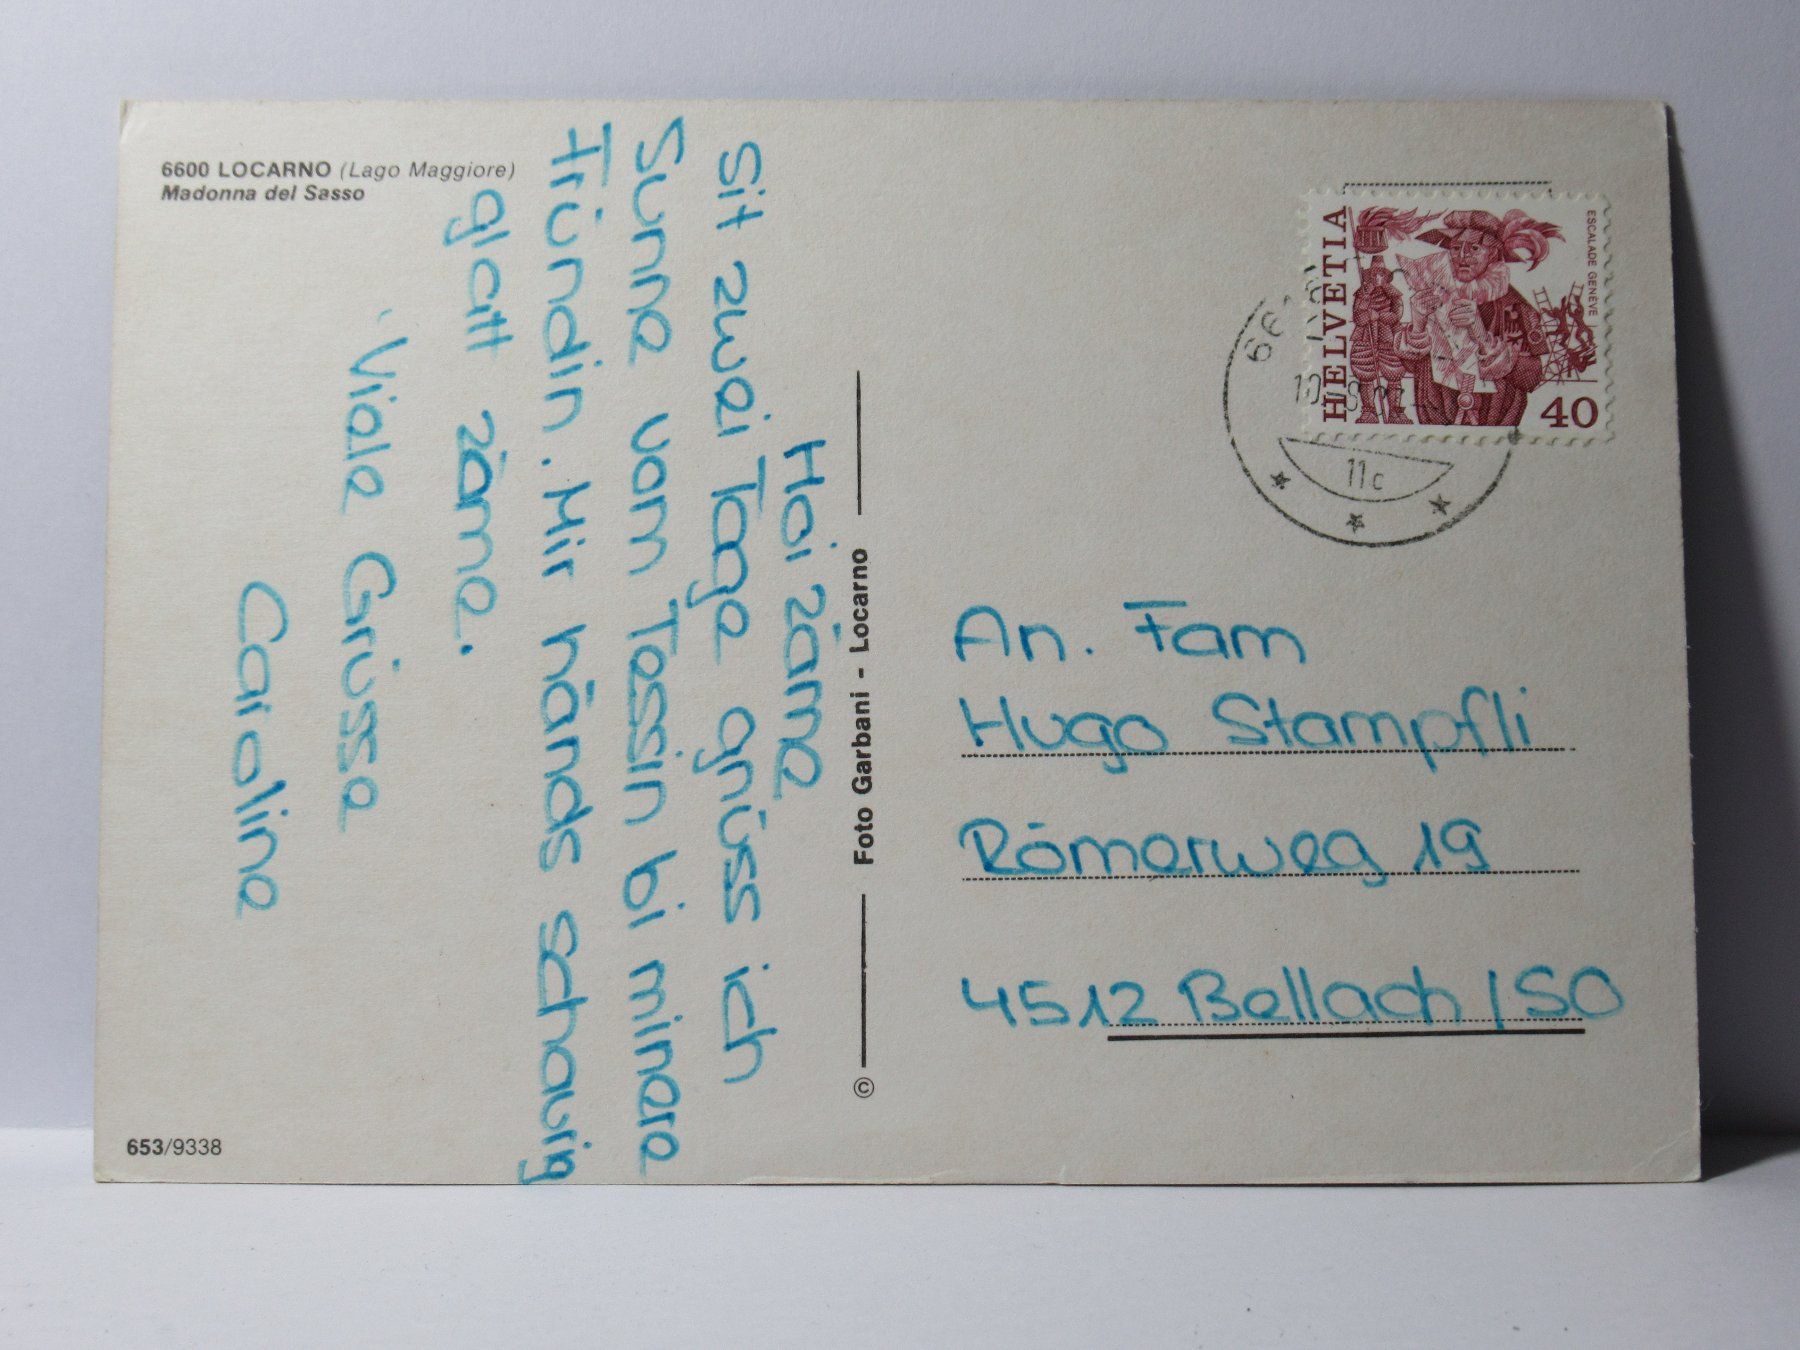 6600 LOCARNO (Lago Maggiore)
Madonna del Sasso
Hoi zäme
Sit zwei Tage gnüss ich
Sunne vom Tessin bi minere
Fründin. Mir händs schaurig
glatt zäme.
Viele Grüsse
Caroline
653/9338
© Foto Garbani - Locarno
HELVETIA
ESCALADE GENÈVE
40
11c
An. Fam
Hugo Stampfli
Römerweg 19
4512 Bellach / SO